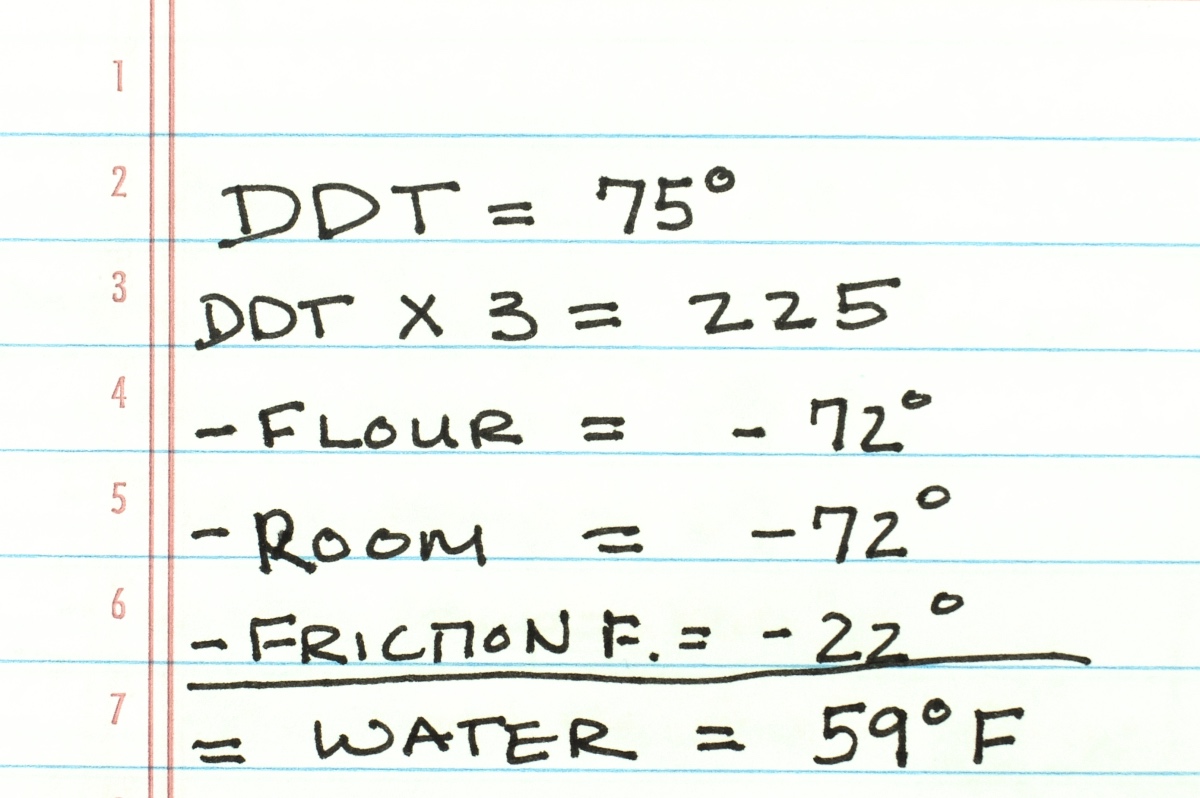 1
2 DDT = 75°
3 DDT X 3 = 225
4 - FLOUR = - 72°
5 - ROOM = - 72°
6 - FRICTION F. = - 22°
7 = WATER = 59°F